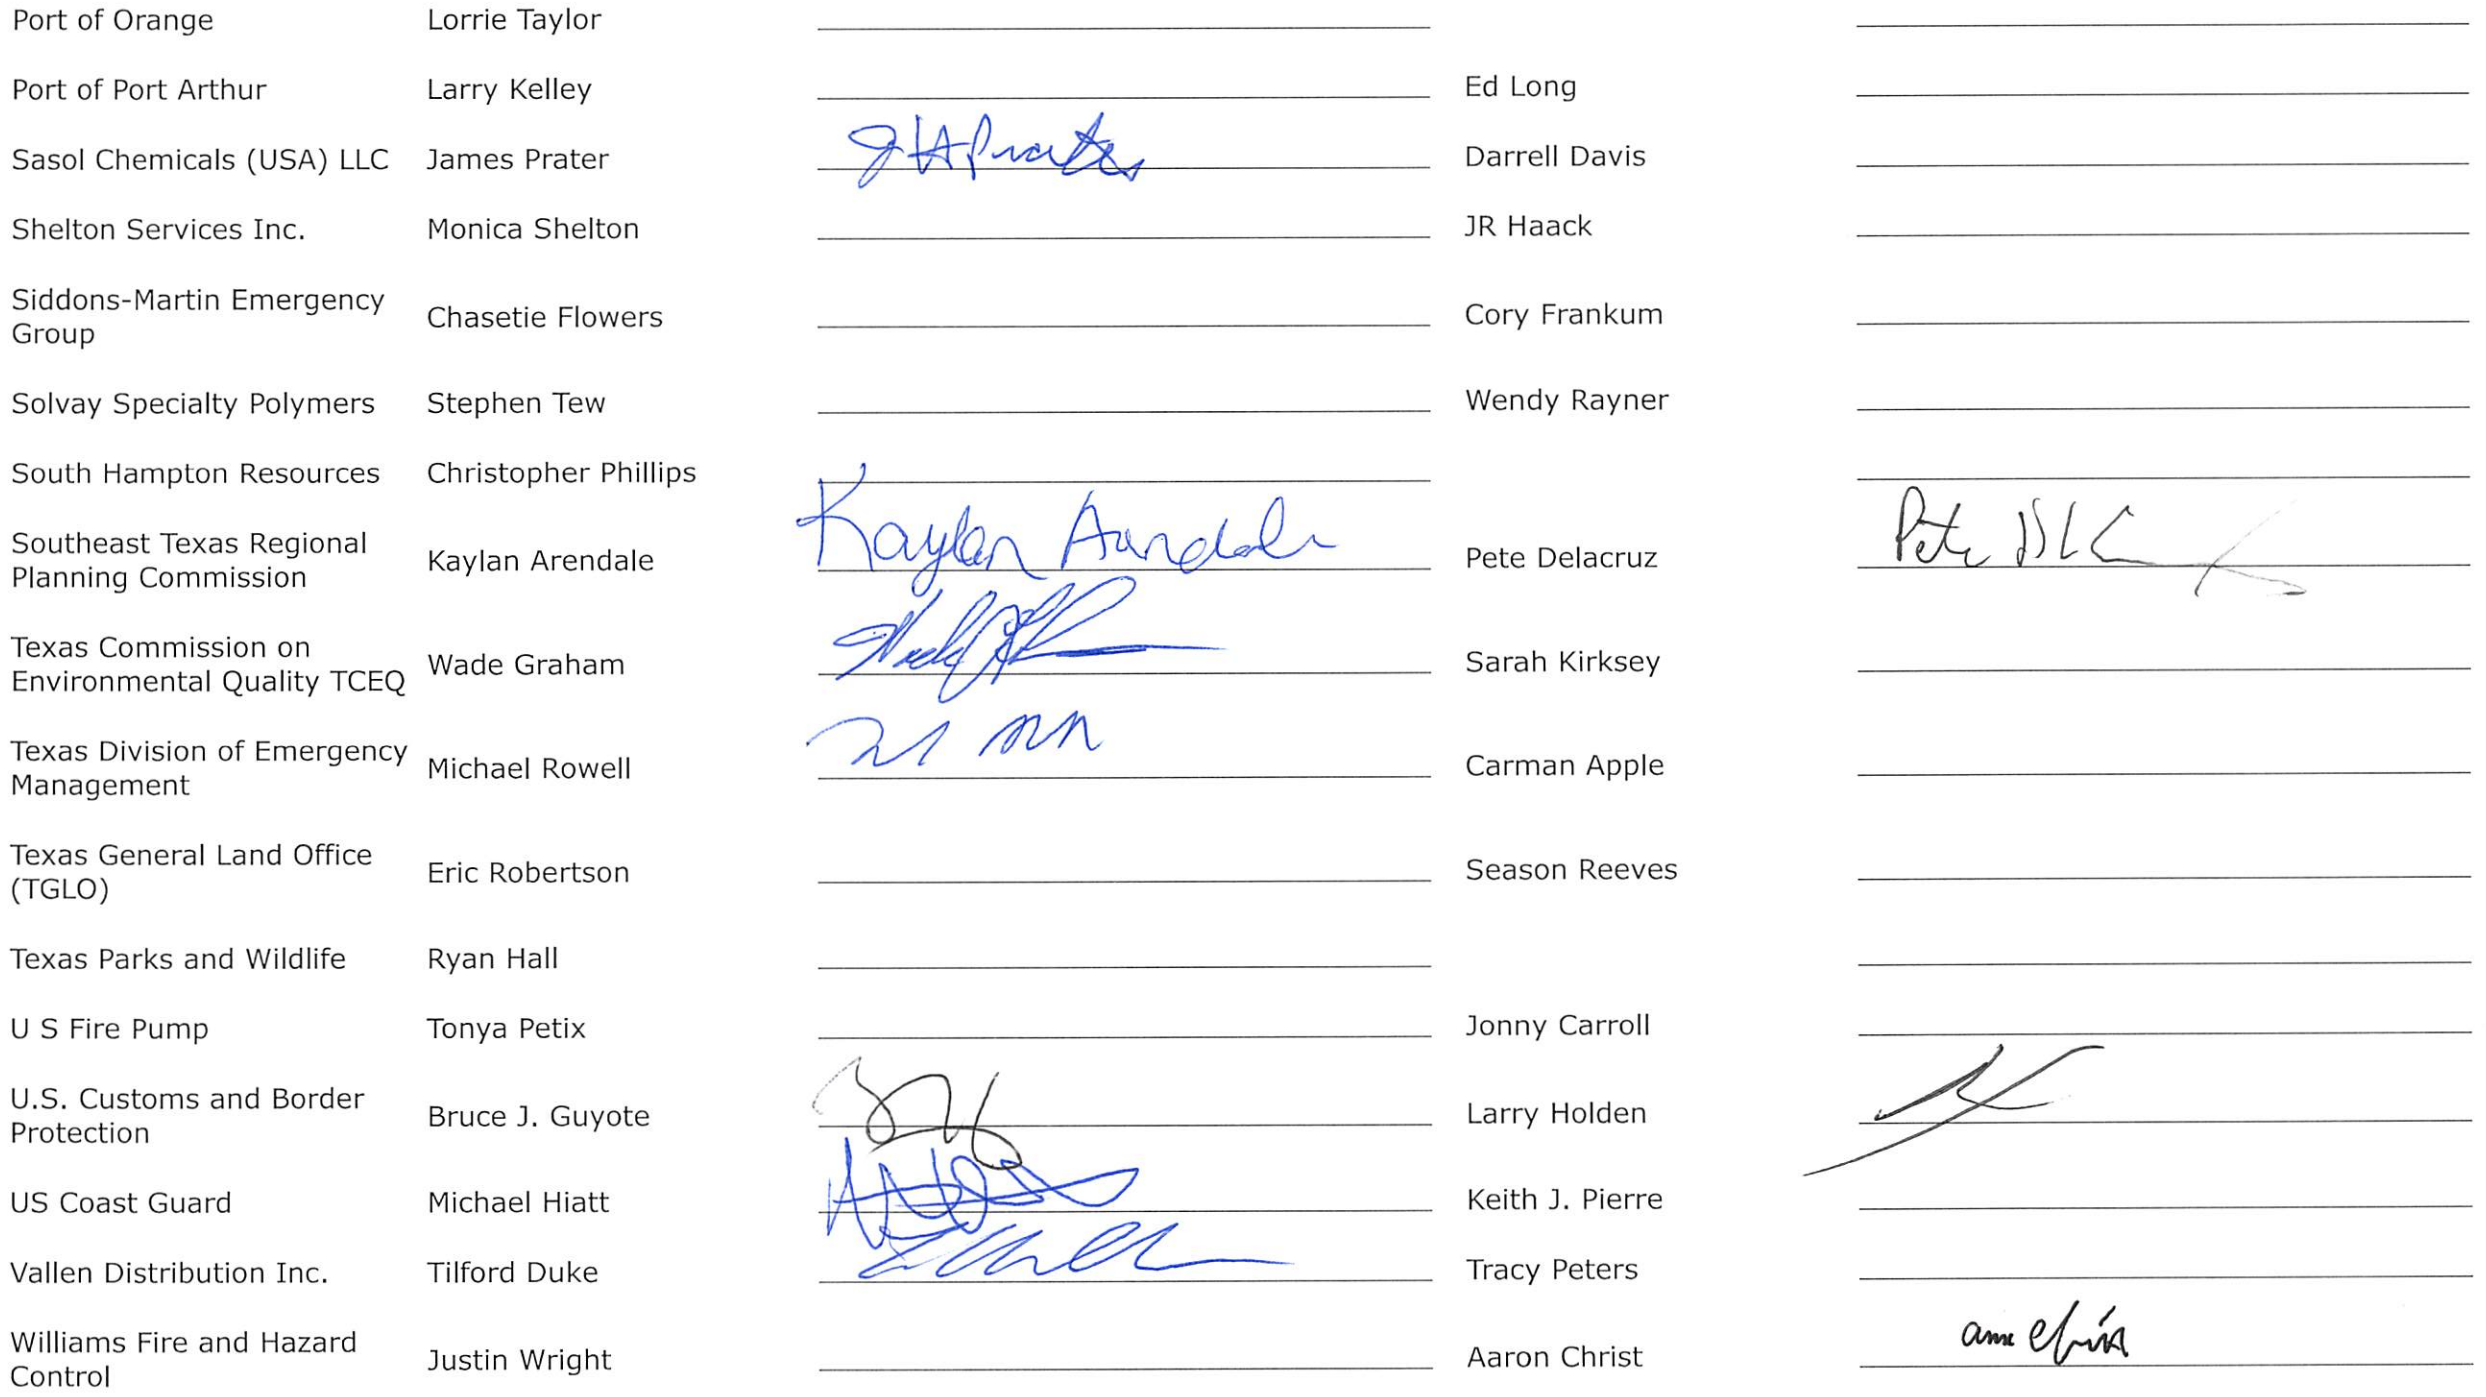 Port of Orange Lorrie Taylor
Port of Port Arthur Larry Kelley Ed Long
Sasol Chemicals (USA) LLC James Prater JHPrater Darrell Davis
Shelton Services Inc. Monica Shelton JR Haack
Siddons-Martin Emergency
Group Chasetie Flowers Cory Frankum
Solvay Specialty Polymers Stephen Tew Wendy Rayner
South Hampton Resources Christopher Phillips
Southeast Texas Regional
Planning Commission Kaylan Arendale Kaylan Arendale Pete Delacruz Pete
Texas Commission on
Environmental Quality TCEQ Wade Graham Sarah Kirksey
Texas Division of Emergency
Management Michael Rowell Carman Apple
Texas General Land Office
(TGLO) Eric Robertson Season Reeves
Texas Parks and Wildlife Ryan Hall
U S Fire Pump Tonya Petix Jonny Carroll
U.S. Customs and Border
Protection Bruce J. Guyote Larry Holden
US Coast Guard Michael Hiatt Keith J. Pierre
Vallen Distribution Inc. Tilford Duke Tracy Peters
Williams Fire and Hazard
Control Justin Wright Aaron Christ